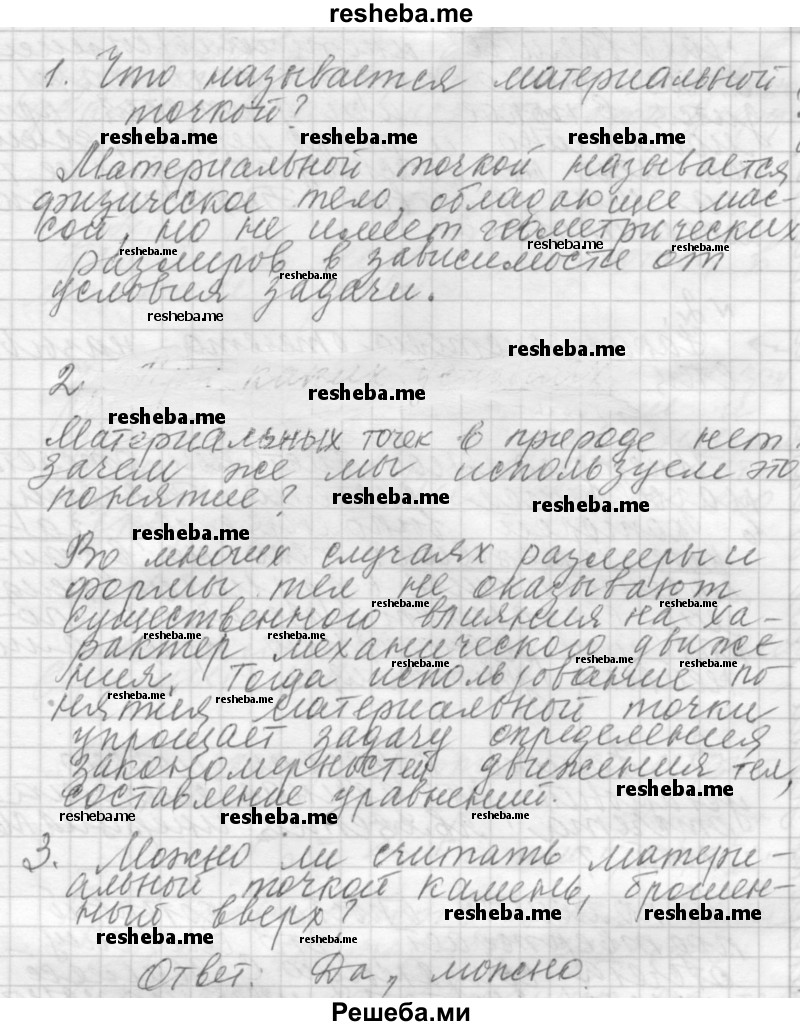 resheba.me
1. Что называется материальной
точкой?
resheba.me resheba.me resheba.me
Материальной точкой называется
физическое тело, обладающее мас-
сой, но не имеет геометрических
resheba.me resheba.me resheba.me
размеров в зависимости от
resheba.me
условия задачи.
resheba.me
resheba.me
2
resheba.me
resheba.me
Материальных точек в природе нет.
Зачем же мы используем это
понятие?
resheba.me resheba.me
resheba.me
Во многих случаях размеры и
формы тел не оказывают
resheba.me resheba.me
существенного влияния на ха-
resheba.me resheba.me
рактер механического движе
resheba.me resheba.me resheba.me
ния. Тогда использование по
resheba.me resheba.me
нятия материальной точки
упрощает задачу определения
закономерностей движения тел,
resheba.me
составление уравнений.
resheba.me resheba.me resheba.me
3. Можно ли считать матери-
альной точкой камень, брошен-
ный вверх?
resheba.me resheba.me
resheba.me resheba.me
Ответ: Да, можно.
Решеба.ми